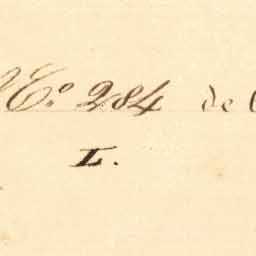 Nº 284 de
L.